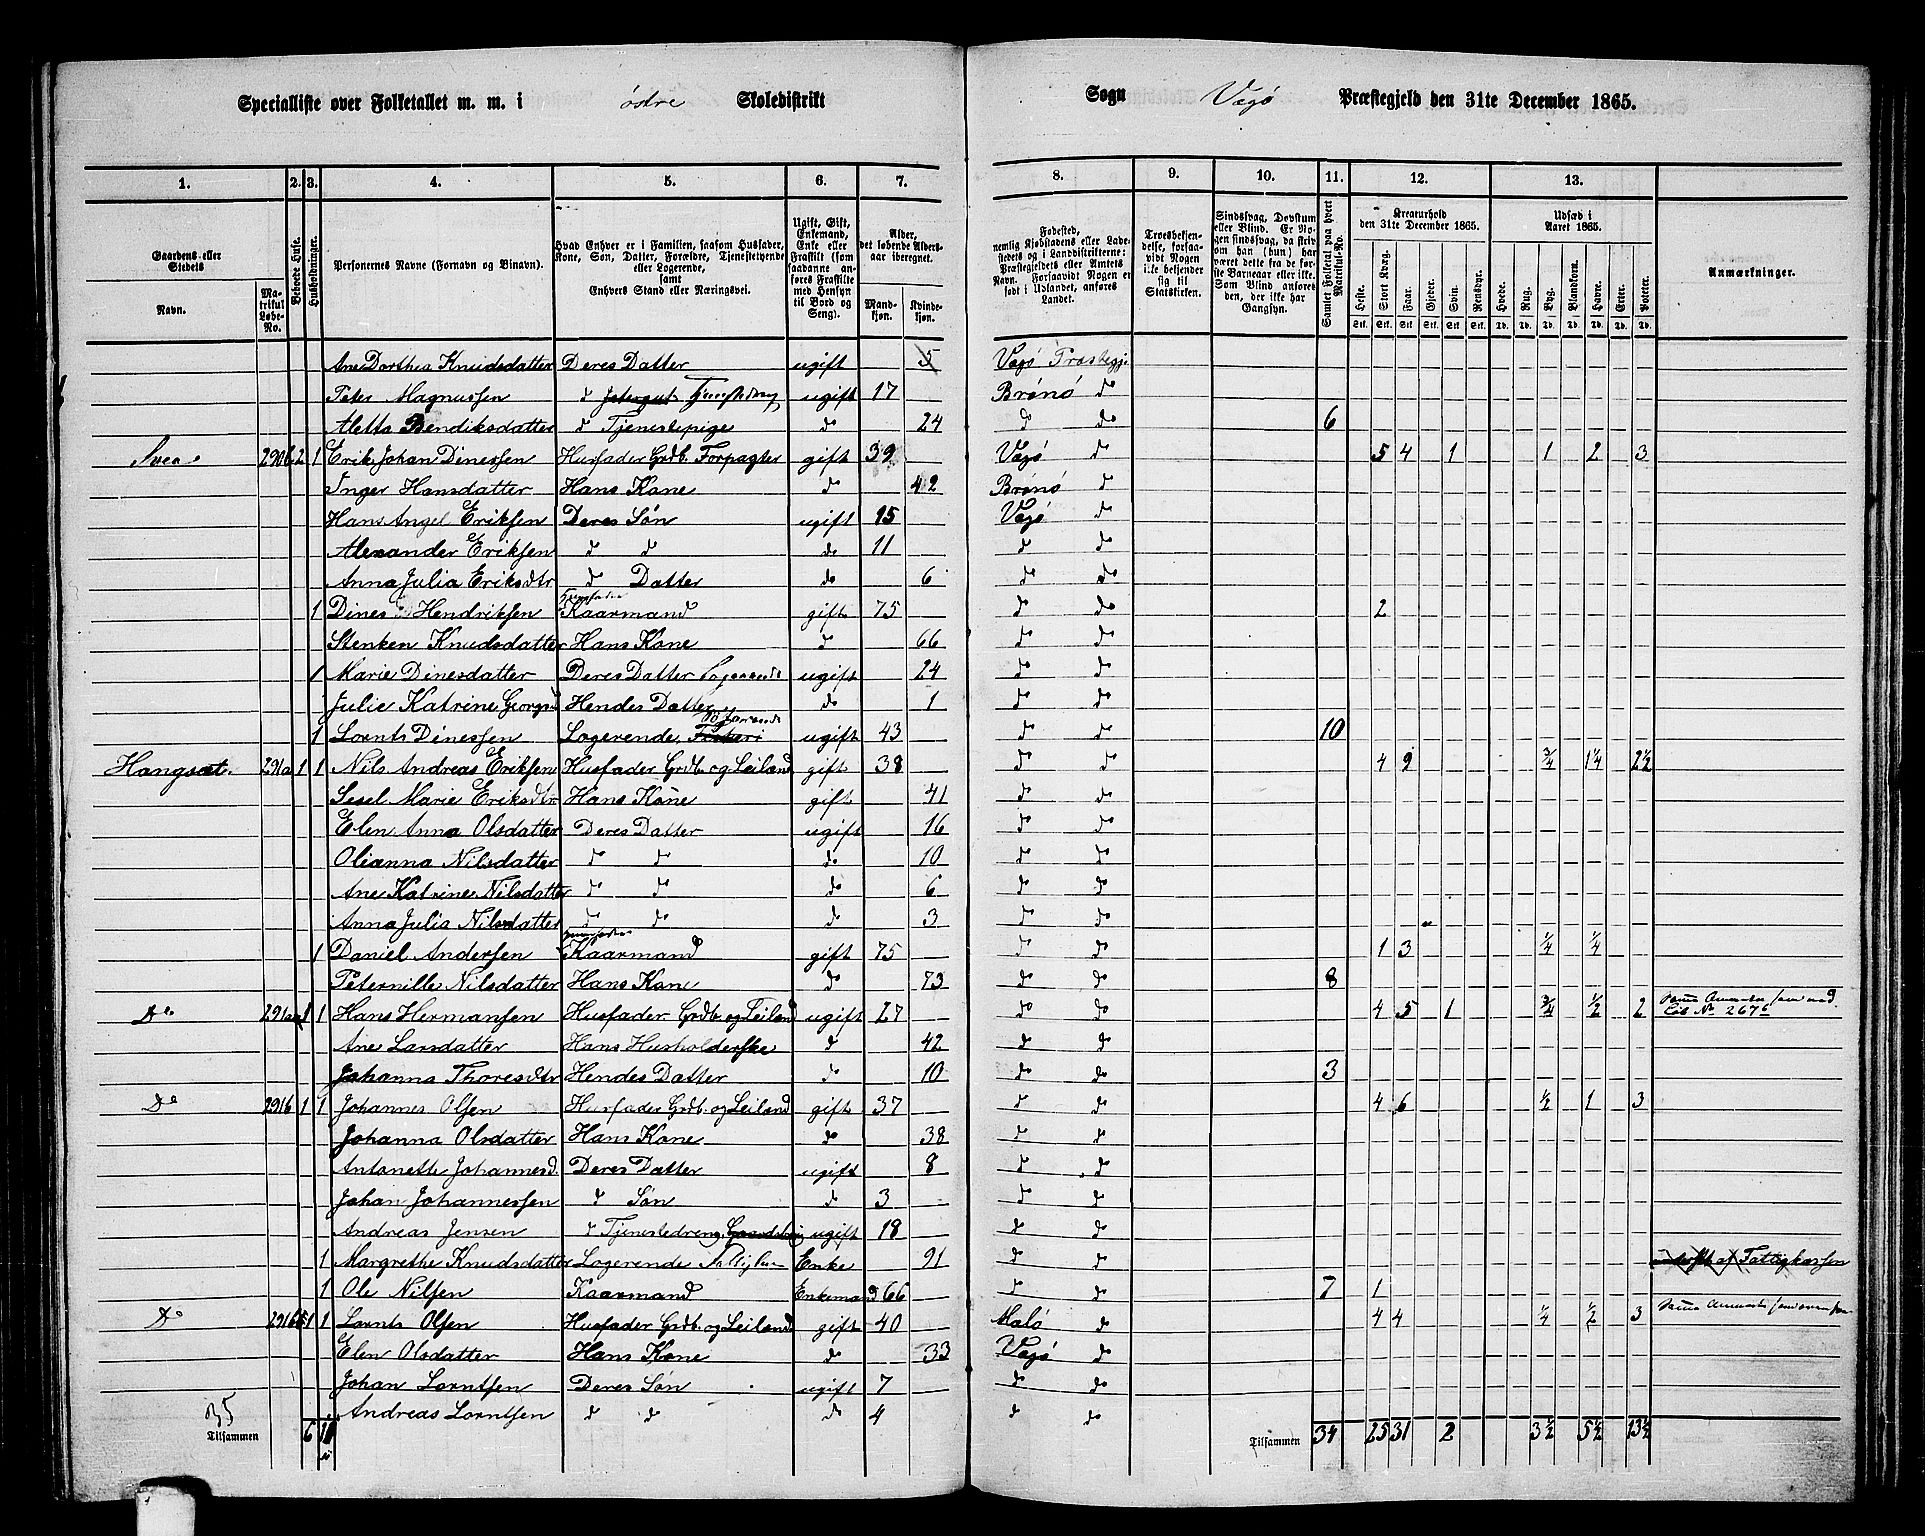 Specialliste over Folketallet m. m. i østre Skoledistrikt Sogn Vegø Præstegjeld den 31te December 1865.
1. 2. 3. 4. 5. 6. 7. 8. 9. 10. 11. 12. 13.
Gaardens eller Stedets
Navn.
Matrikul Løbe-No.
Beboede Huse.
Husholdninger.
Personernes Navne (Fornavn og Binavn).
Hvad Enhver er i Familien, saasom Husfader, Kone, Søn, Datter, Forældre, Tjenestetyende eller Logerende,
samt
Enhvers Stand eller Næringsvei.
Ugift, Gift, Enkemand, Enke eller Fraskilt (som saadanne anføres Fraskilte med Hensyn til Bord og Seng).
Alder, det løbende Aldersaar iberegnet.
Mandkjøn. Kvindekjøn.
Fødested, nemlig Kjøbstadens eller Ladestedets og i Landdistrikterne: Præstegjeldets eller Amtets Navn. Forsaavidt Nogen er født i Udlandet, anføres Landet.
Troesbekjendelse, forsaavidt Nogen ikke bekjender sig til Statskirken.
Sindssvag, Døvstum eller Blind. Er Nogen sindssvag, da skrives om han (hun) har været dette fra de første Barneaar eller ikke. Som Blind anføres den, der ikke har Gangsyn.
Samlet Folketal paa hvert Matrikul-No.
Kreaturhold den 31te December 1865.
Heste. Stort Kvæg. Faar. Gjeder. Svin. Rensdyr.
Udsæd i Aaret 1865.
Hvede. Rug. Byg. Blandkorn. Havre. Erter. Poteter.
Anmærkninger.
Ane Dorthea Knudsdatter Deres Datter ugift 5 Vegø Præstegj.
Peter Magnussen d Tjenestedreng ugift 17 Brønø do
Aletta Bendiksdatter d Tjenestepige do 24 do do 6
Svea 290b 2 1 Erik Johan Dinessen Husfader Grdb. Forpagter gift 39 Vegø do 5 4 1 1 2 3
Inger Hansdatter Hans Kone do 42 Brønø do
Hans Angel Eriksen Deres Søn ugift 15 Vegø do
Alexander Eriksen d d do 11 do do
Anna Julia Eriksdtr d Datter do 6 do do
1 Dines Hendriksen Kaarmand gift 75 do do 2
Stenken Knudsdatter Hans Kone d 66 do do
1 Marie Dinesdatter Deres Datter Logerende ugift 24 do do
Julie Katrine Georgsd Hendes Datter do 1 do do
1 Lornts Dinessen Logerende ugift 43 do do 10
Hangsæt. 291a 1 1 Nils Andreas Eriksen Husfader Grdb. og Leilænd gift 38 do do 4 9 3/4 1 1/4 2 1/2
Sesel Marie Eriksdtr Hans Kone gift 41 do do
Elen Anna Olsdatter Deres Datter ugift 16 do do
Olianna Nilsdatter d d do 10 do do
Ane Katrine Nilsdatter d d do 6 do do
Anna Julia Nilsdatter d d do 3 do do
1 Daniel Andersen Kaarmand gift 75 do do 1 3 1/4 1/4
Peternille Nilsdatter Hans Kone do 73 do do 8
Do 291aa 1 1 Hans Hermansen Husfader Grdb. og Leilænd ugift 27 do do 4 5 1 3/4 1/2 2
Ane Larsdatter Hans Husholderske d 42 do do
Johanna Thoresdtr Hendes Datter d 10 do do 3
Do 291b 1 1 Johannes Olsen Husfader Grdb. og Leilænd gift 37 do do 4 6 1/2 1 3
Johanna Olsdatter Hans Kone do 38 do do
Antonette Johannesd. Deres Datter ugift 8 do do
Johan Johannessen d Søn d 3 do do
Andreas Jensen d Tjenestedreng ugift 18 do do
1 Margrethe Knudsdatter Logerende Enke 91 do do af Fattigkassen
1 Ole Nilsen Kaarmand Enkemand 66 do do 7 1
Do 291bb 1 1 Lornts Olsen Husfader Grdb. og Leilænd gift 40 Melø do 4 4 1/4 1/2 3
Elen Olsdatter Hans Kone do 33 Vegø do
Johan Lorntsen Deres Søn ugift 7 do do
Andreas Lorntsen d d do 4 do do
35
Tilsammen 6 11 Tilsammen 34 25 31 2 3 1/2 5 1/2 13 1/2